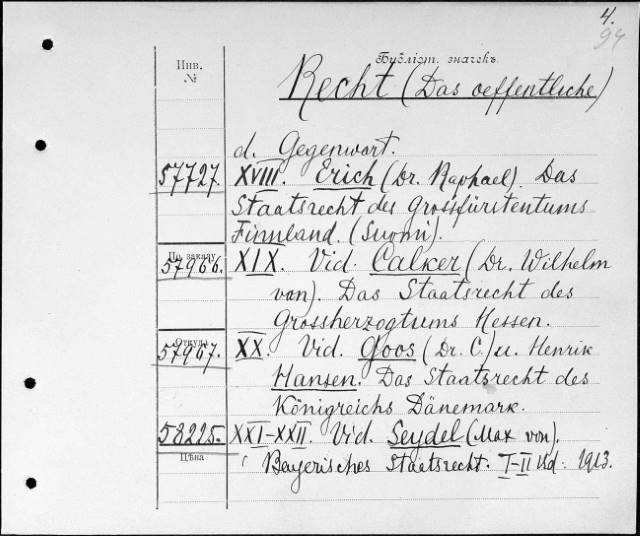 4.
94
Инв.
№
Бубліот. значекъ
Recht (Das oeffentliche)
d. Gegenwart.
57727. XVIII. Erich (Dr. Raphael). Das
Staatsrecht des Grossfürstentums
Finnland. (Suomi).
По заказу
57966. XIX. Vid. Calker (Dr. Wilhelm
von). Das Staatsrecht des
Grossherzogtums Hessen.
Откуда
57967. XX. Vid. Goos (Dr. C.) u. Henrik
Hansen. Das Staatsrecht des
Königreichs Dänemark.
58225. XXI-XXII. Vid. Seydel (Max von).
Цѣна
Bayerisches Staatsrecht. I-II Bd. 1913.